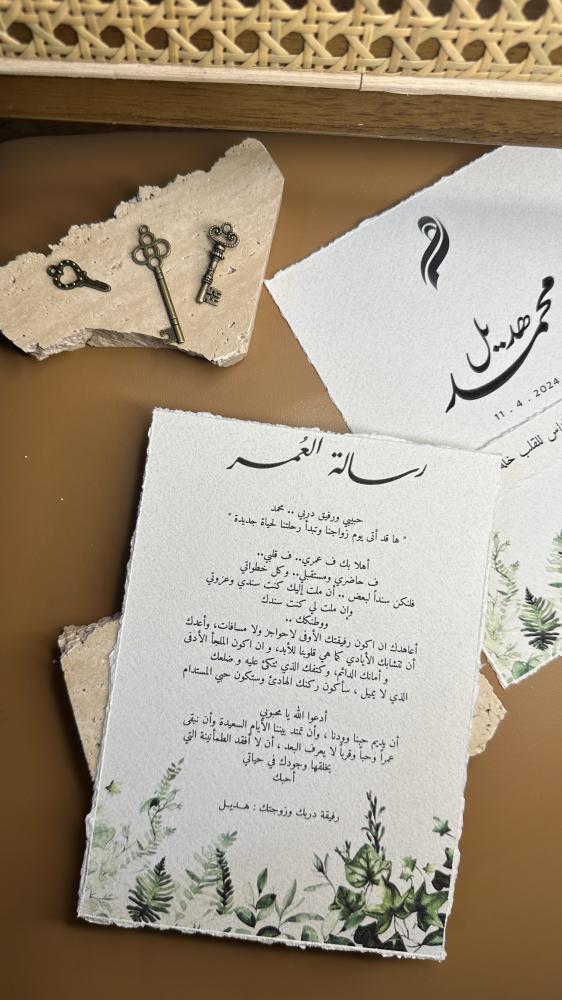 محمد
هديل
11 . 4 . 2024
رسالة العُمر
حبيبي ورفيق دربي .. محمد
" ها قد أتى يوم زواجنا ونبدأ رحلتنا لحياة جديدة "
أهلا بك ف عمري.. ف قلبي..
ف حاضري ومستقبلي.. وكل خطواتي
فلنكن سنداً لبعض .. أن ملت إليك كنت سندي وعزوتي
وإن ملت لي كنت سندك
ووطنك ..
أعاهدك ان اكون رفيقتك الأوفى لاحواجز ولا مسافات، وأعدك
أن تتشابك الأيادي كما هي قلوبنا للأبد، و ان اكون الملجأ الأدفى
و أمانك الدائم، وكتفك الذي تتكئ عليه و ضلعك
الذي لا يميل ، سأكون ركنك الهادئ وستكون حبي المستدام
أدعوا الله يا محبوبي
أن يديم حبنا وودنا ، وأن تمتد بيننا الأيام السعيدة وأن نبقى
عمراً وحباً وقرباً لا يعرف البعد ، أن لا أفقد الطمأنينة التي
يخلقها وجودك في حياتي
أحبك
رفيقة دربك وزوجتك : هـديـل